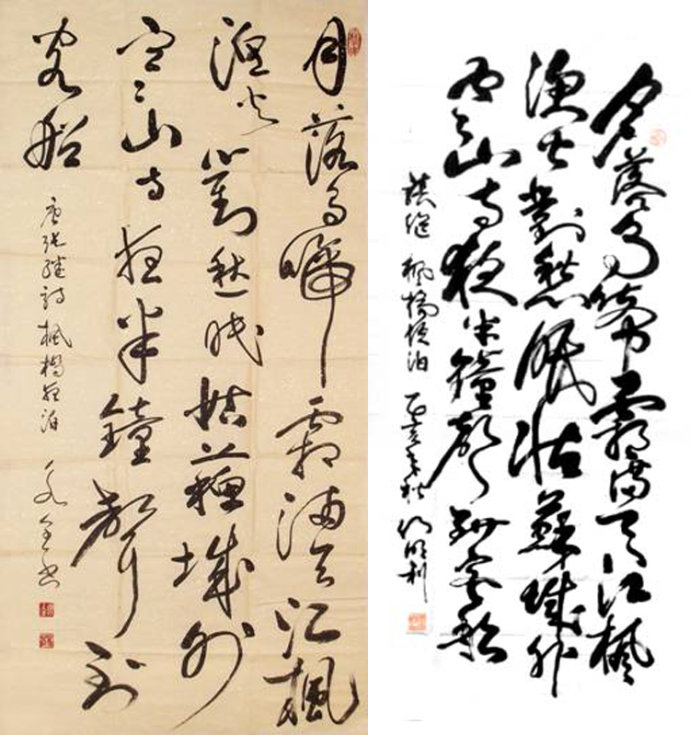 月落烏啼霜滿天江楓
漁火對愁眠姑蘇城外
寒山寺夜半鐘聲到
客船
唐張繼詩楓橋夜泊
月落烏啼霜滿天江楓
漁火對愁眠姑蘇城外
寒山寺夜半鐘聲到客船
張繼楓橋夜泊